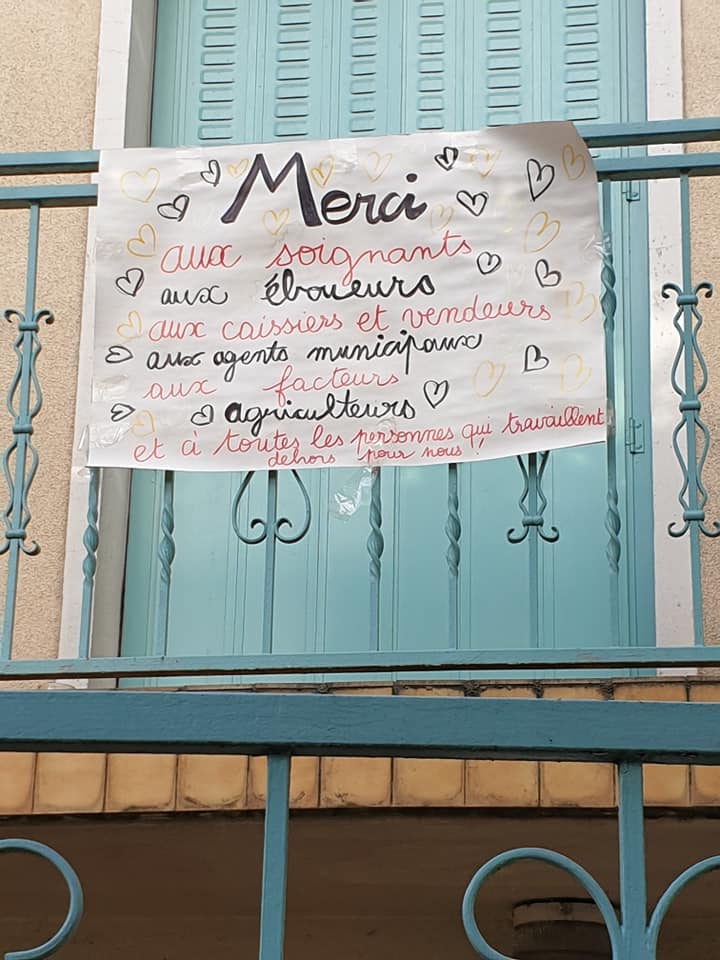 Merci
aux soignants
aux éboueurs
aux caissiers et vendeurs
aux agents municipaux
aux facteurs
agriculteurs
et à toutes les personnes qui travaillent
dehors pour nous !